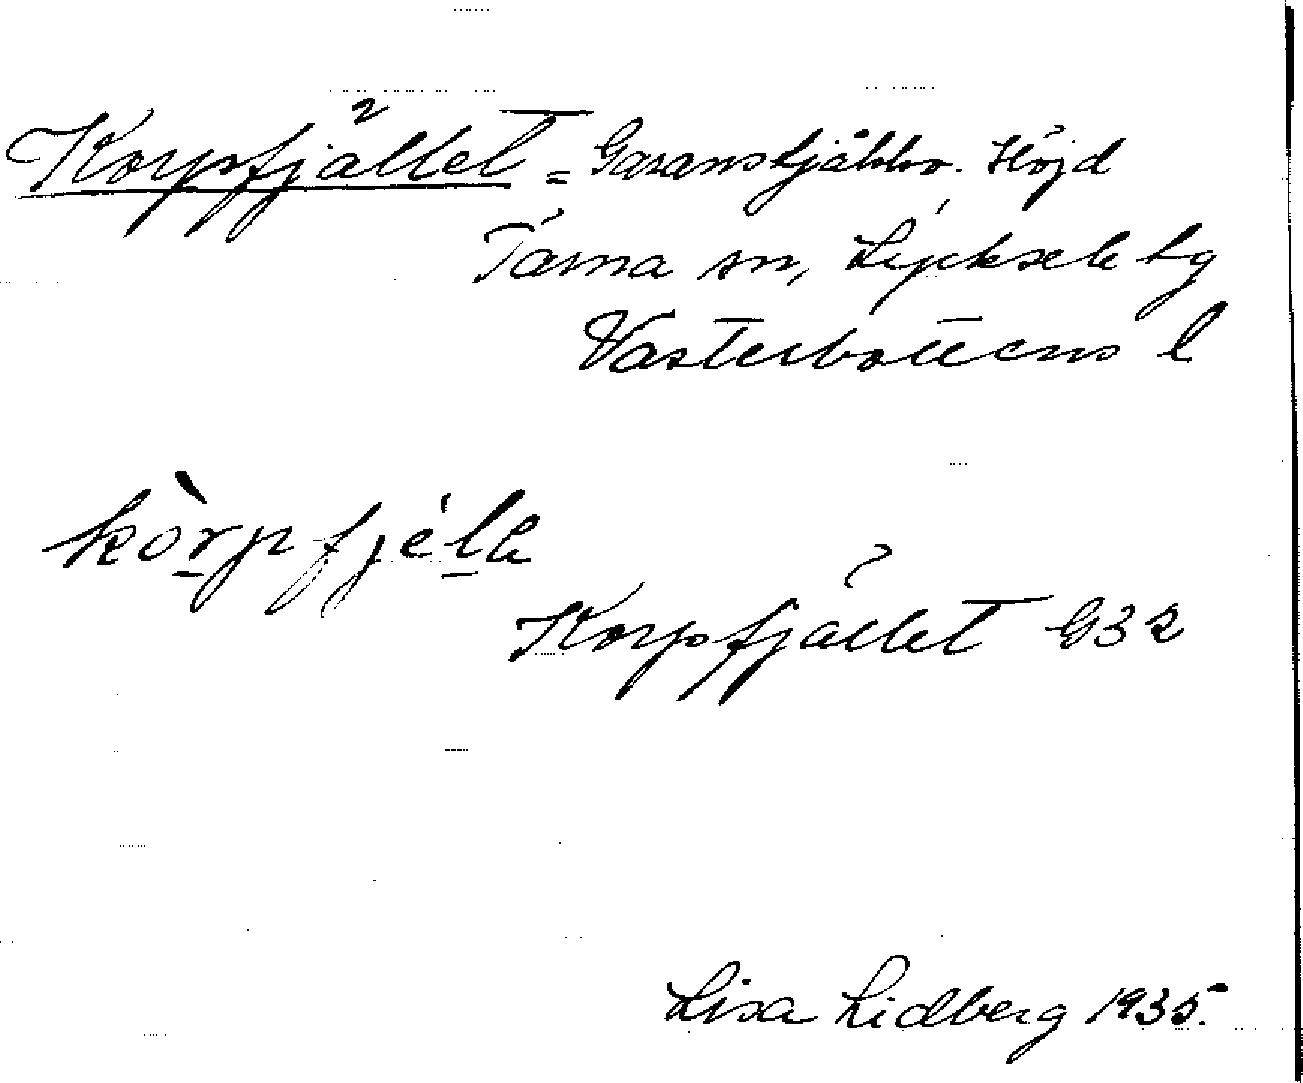 Korpfjället = Garanskjåbbo. Höjd
Tärna sn, Lycksele lg
Västerbottens l
kòrpfjélk
Korpfjället G32
Lisa Lidberg 1935.